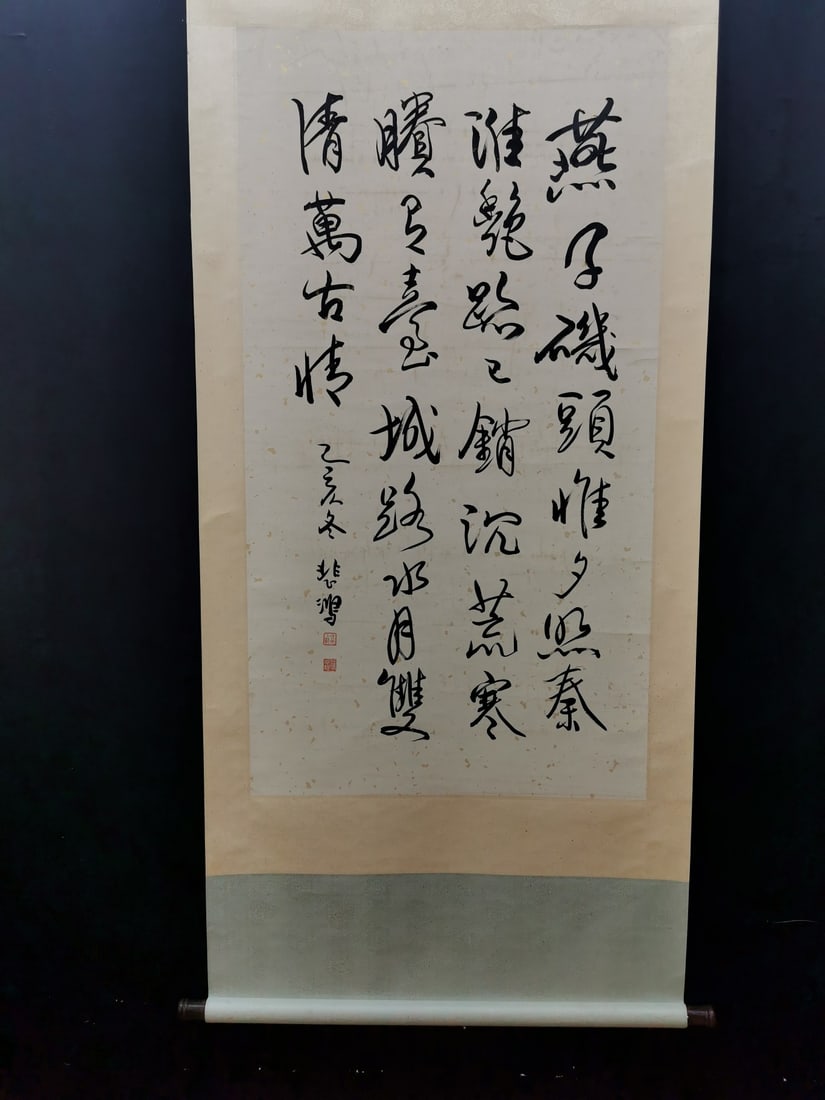 燕子磯頭惟夕照秦
淮艷跡已銷沉荒寒
賸有臺城路水月雙
清萬古情
乙亥冬 悲鴻